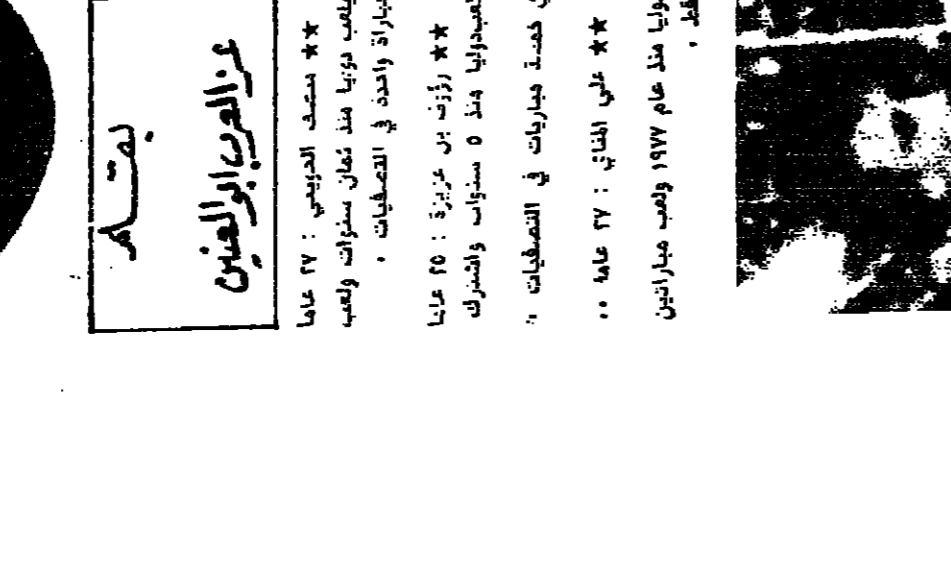 بقلم
عز العرب أبو العنين
★★ محمد الدويمي : ٢٧ عاما
يلعب دوليا منذ ثمان سنوات ولعب
مباراة واحدة في التصفيات .
★★ رؤوف بن عزيزة : ٢٥ عاما
دوليا منذ ٥ سنوات واشترك
خمسة مباريات في التصفيات ..
★★ علي : ٢٧ عاما ..
منذ عام ١٩٧٧ ولعب مباراتين
فقط .